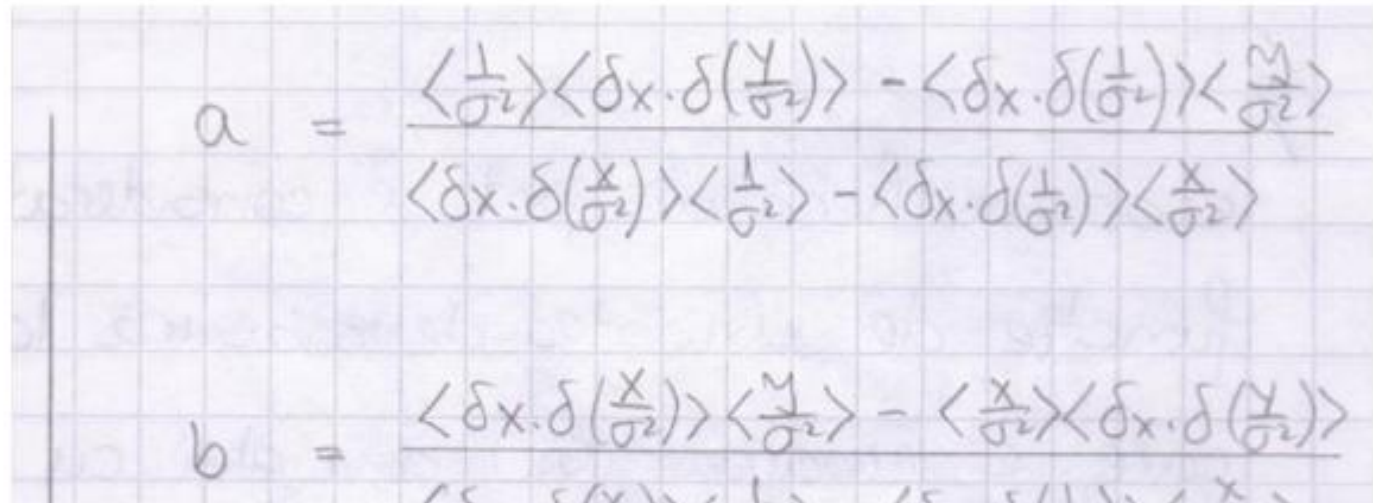 a = <1/σ²><δx.δ(y/σ²)> - <δx.δ(1/σ²)><y/σ²>
<δx.δ(x/σ²)><1/σ²> - <δx.δ(1/σ²)><x/σ²>
b = <δx.δ(x/σ²)><y/σ²> - <x/σ²><δx.δ(y/σ²)>